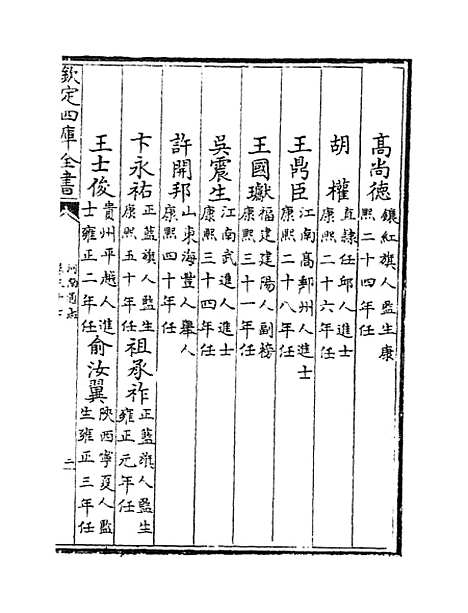 高尚德 鑲紅旗人監生康
熙二十四年任
胡權 直隸任邱人進士
康熙二十六年任
王鼎臣 江南高郵州人進士
康熙二十八年任
王國瓛 福建建陽人副榜
康熙三十一年任
吳震生 江南武進人進士
康熙三十四年任
許開邦 山東海豐人舉人
康熙四十年任
卞永祐 正藍旗人監生
康熙五十年任
祖承祚 正藍旗人監生
雍正元年任
王士俊 貴州平越人進
士雍正二年任
俞汝翼 陝西寧夏人監
生雍正三年任
欽定四庫全書
河南通志
二